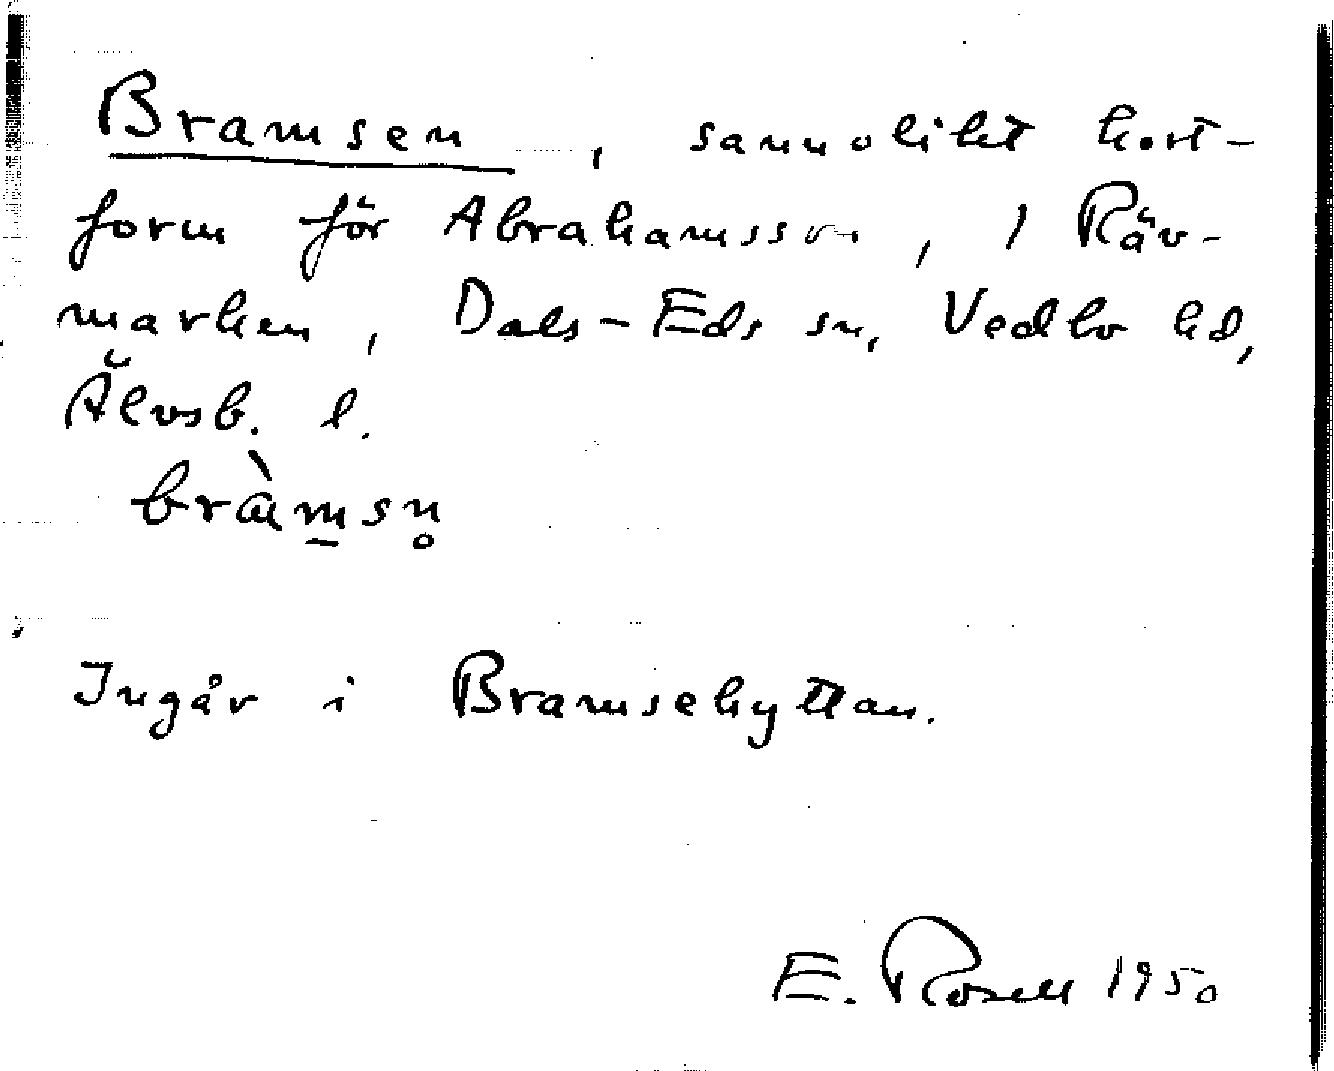 Bramsen, sannolikt kort-
form för Abrahamsson, i Räv-
marken, Dals-Eds sn, Vedbo hd,
Älvsb. l.
bràm̲sn̥
Ingår i Bramsehyttan.
E. Rosell 1950